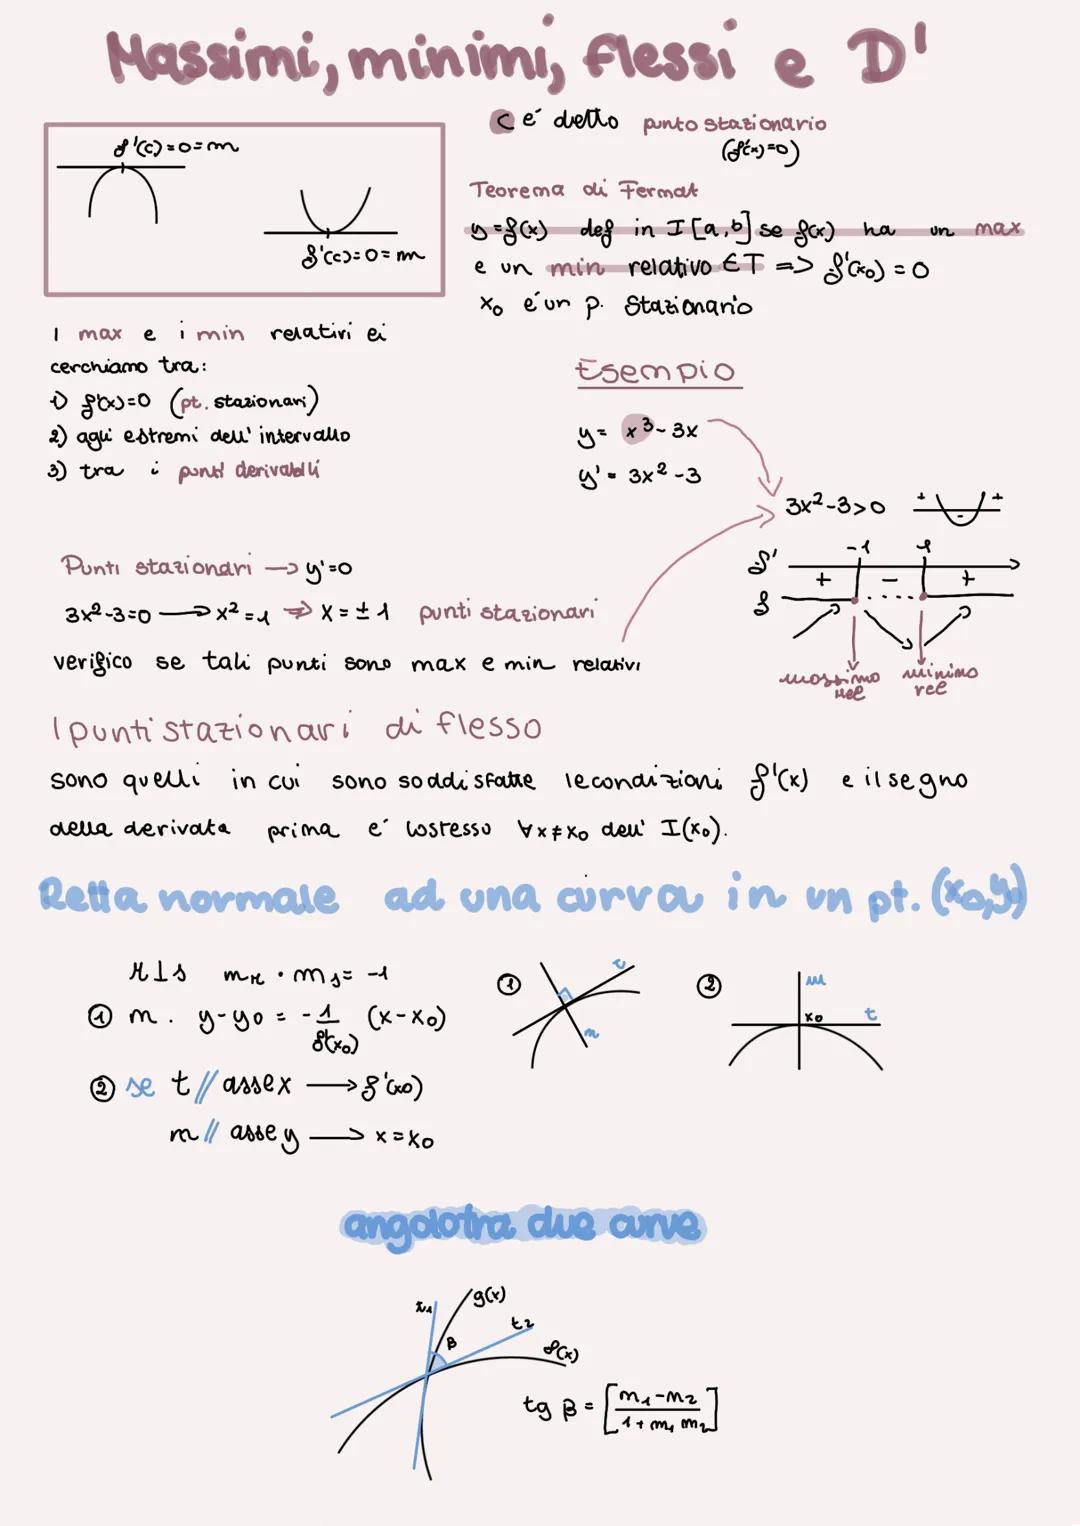 Massimi, minimi, flessi e D'
f'(c)=0=m
f'(c)=0=m
C é detto punto stazionario
(f'(x)=0)
Teorema di Fermat
y=f(x) def in I [a,b] se f(x) ha un max
e un min relativo ∈ I => f'(x₀) = 0
x₀ é un p. stazionario
I max e i min relativi ei
cerchiamo tra:
1) f'(x)=0 (pt. stazionari)
2) agli estremi dell'intervallo
3) tra i punti derivabili
Esempio
y= x³-3x
y'= 3x²-3
3x²-3>0 + - +
-1 1
f' + - +
f
massimo rel
minimo rel
Punti stazionari → y'=0
3x²-3=0 → x²=1 => x=±1 punti stazionari
verifico se tali punti sono max e min relativi
I punti stazionari di flesso
sono quelli in cui sono soddisfatte le condizioni f'(x) e il segno
della derivata prima e' lo stesso ∀x≠x₀ dell' I(x₀).
Retta normale ad una curva in un pt. (x₀,y₀)
r⊥s mr · ms = -1
① n. y-y₀ = -1/f'(x₀) (x-x₀)
② se t // asse x → f'(x₀)
n // asse y → x=x₀
① t
n
② n
x₀ t
angolo tra due curve
t₁ g(x)
t₂
β f(x)
tg β = [m₁-m₂ / 1+m₁ m₂]